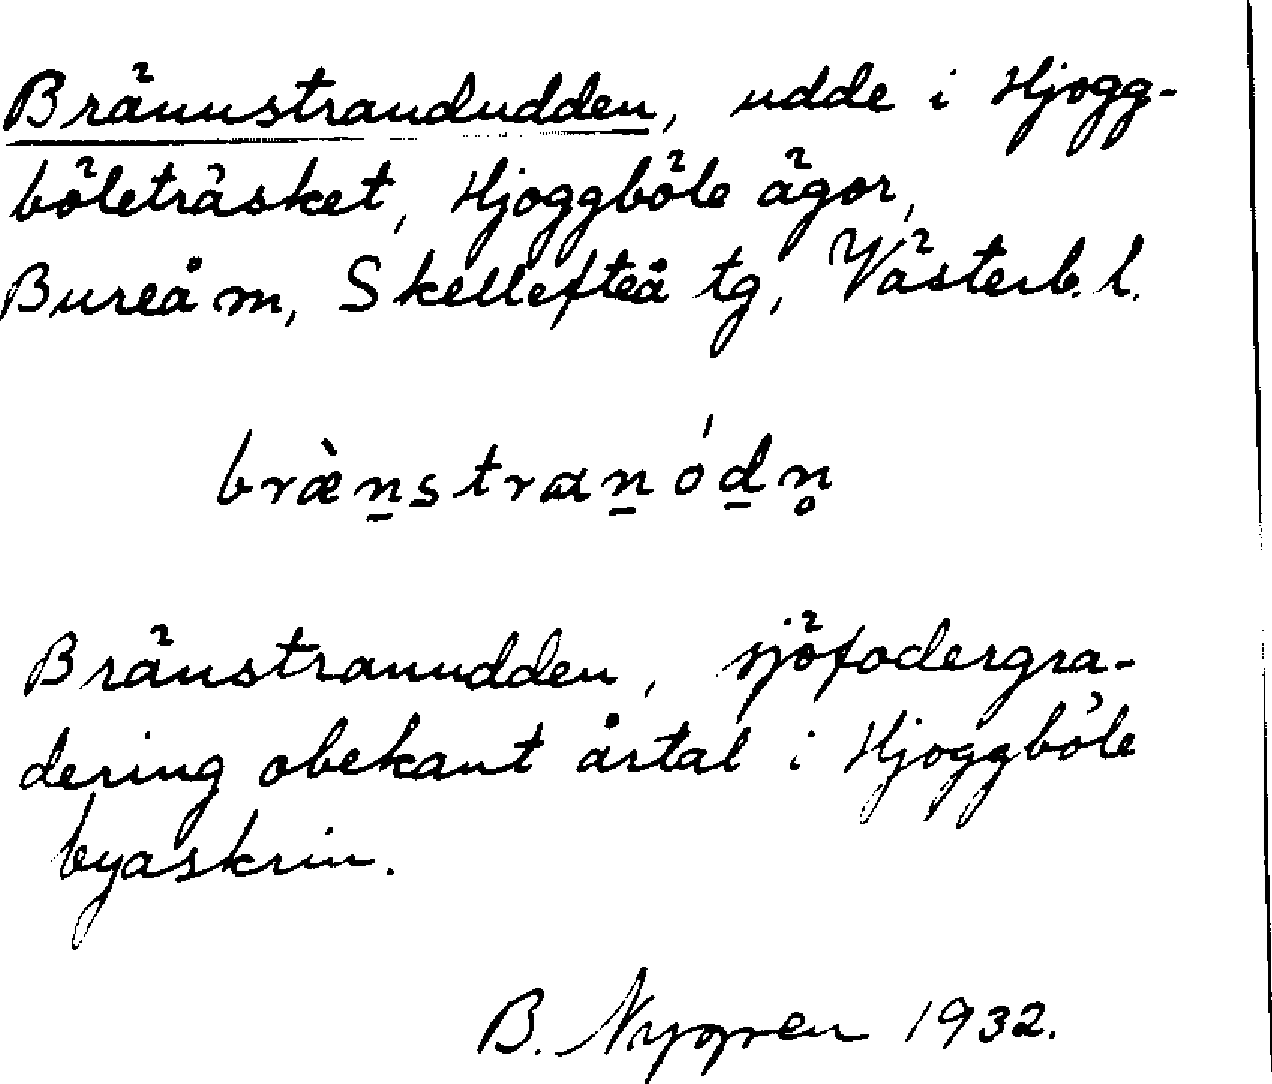 Brännstrandudden, udde i Hjogg-
böleträsket, Hjoggböle ägor,
Bureå m, Skellefteå tg, Västerb. l.
bræ̀n̠s̠tran̠ ó́d̠n̥
Bränstranudden, sjöfodergra-
dering obekant årtal i Hjoggböle
byaskrin.
B. Nygren 1932.